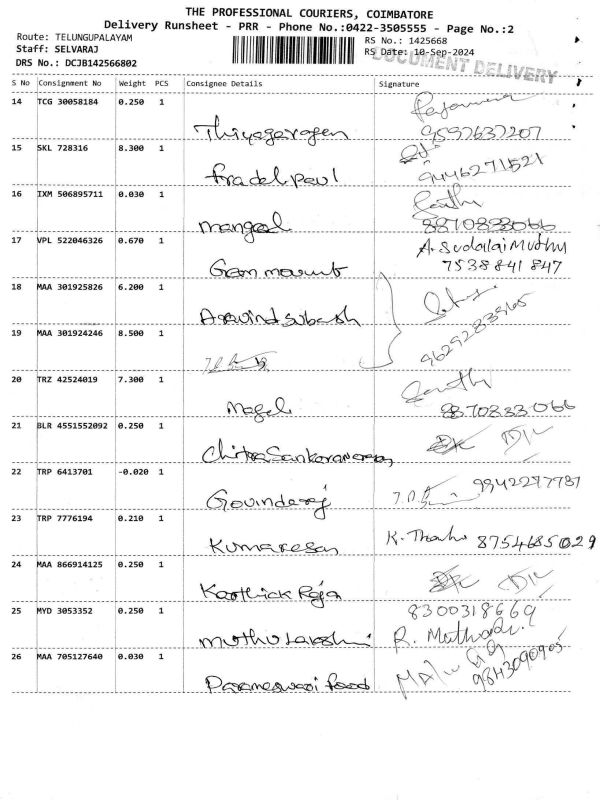 THE PROFESSIONAL COURIERS, COIMBATORE
Delivery Runsheet - PRR - Phone No.:0422-3505555 - Page No.:2
Route: TELUNGUPALAYAM
RS No.: 1425668
Staff: SELVARAJ
RS Date: 10-Sep-2024
DOCUMENT DELIVERY
DRS No.: DCJB142566802
S No Consignment No Weight PCS Consignee Details Signature
14 TCG 30058184 0.250 1
Thiyagaragen 9597637207
15 SKL 728316 8.300 1
Pradelpaul 9446271521
16 IXM 506895711 0.030 1
mangal 8870833066
17 VPL 522046326 0.670 1 A. SudalaiMuthu
7538841847
18 MAA 301925826 6.200 1
Aravindsubash
19 MAA 301924246 8.500 1
9629283565
20 TRZ 42524019 7.300 1
Magel 8870833066
21 BLR 4551552092 0.250 1
ChitraSankaranarayan
22 TRP 6413701 -0.020 1
Govinderaj 9942277787
23 TRP 7776194 0.210 1
Kumaresan 8754685029
24 MAA 866914125 0.250 1
Karthick Raja
25 MYD 3053352 0.250 1 8300318669
muthulakshmi
26 MAA 705127640 0.030 1
Parameswari food 9843090905